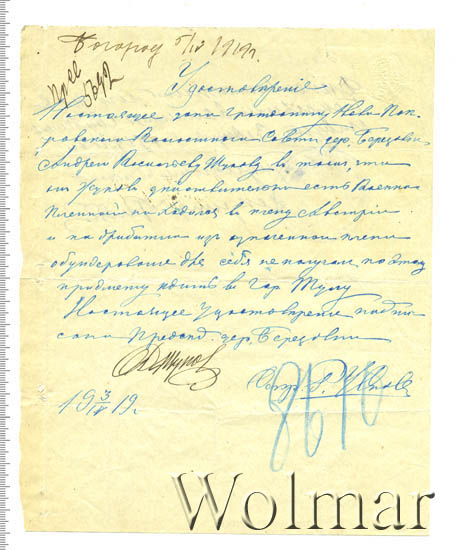 Богород 5/IV 1919г.
5642
Удостоверение
Настоящее дано гражданину Ново Пок-
ровского Волостного Совета дер. Березовки
Андрею Васильеву Жукову в том, что
он Жуков действительно есть Военно
Пленный находился в плену Австрии
и по прибытии из означенного плена
обмундирование для себя не получал по этому
предмету едит в гор Тулу
Настоящее Удостоверение подпи
сано Председ. дер. Березовки
19 3/IV 19 г.
Wolmar